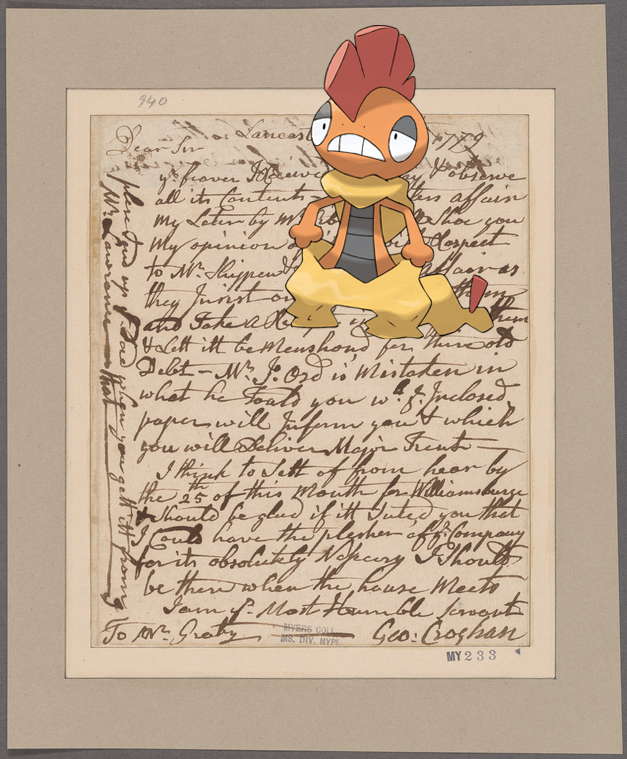 940
Dear Sir
Lancas 1779
yr. faver I Receiv observe
all its Contents affair
my Leter by Mr Shoe you
My opinion Respect
to Mr. Shippen affair as
they Insist on them
and Take a Re them
& Lett itt be Menshond for there old
Debt - Mr. Js. Ord is Mistaken in
what he Tould you wh. ye. Inclosed
papers will Inform you & which
you will Deliver Major Trent
I think to Sett of from hear by
the 25th of this Month for Williamsburg
& Should be glad if itt Suted you that
I Could have the plesher of yr. Company
for its absolutely Nesecery I Should
be there when the house Meets
I am yr. Most Humble Servant
To Mr. Gratz Geo: Croghan
plese up when you gett itt from
Mr. Lawrance that
MYERS COLL.
MS. DIV. NYPL
MY 233